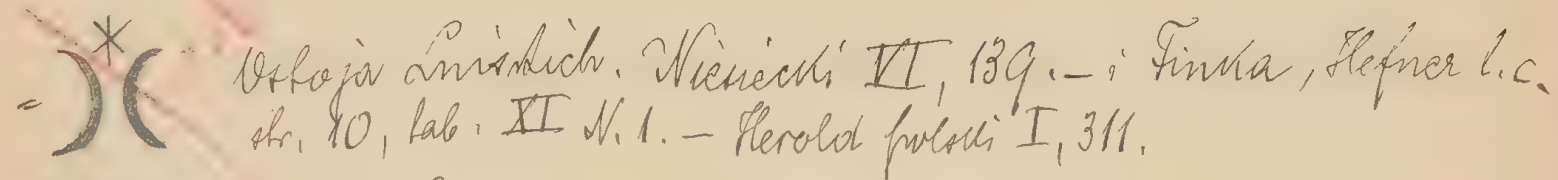 Ostoja Lniskich. Niesiecki VI, 139. – i Finka, Hefner l.c.
str. 10, tab. XI N. 1. – Herold polski I, 311.